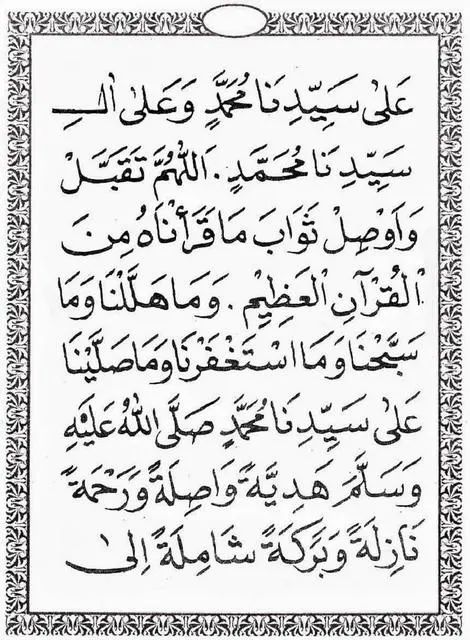 عَلىٰ سَيِّدِنَا مُحَمَّدٍ وَعَلىٰ اٰلِـ
سَيِّدِنَا مُحَمَّدٍ . اَللّٰهُمَّ تَقَبَّلْ
وَاَوْصِلْ ثَوَابَ مَا قَرَأْنَاهُ مِنَ
الْقُرْآنِ الْعَظِيْمِ . وَمَا هَلَّلْنَا وَمَا
سَبَّحْنَا وَمَا اسْتَغْفَرْنَا وَمَا صَلَّيْنَا
عَلىٰ سَيِّدِنَا مُحَمَّدٍ صَلَّى اللهُ عَلَيْهِ
وَسَلَّمَ هَدِيَّةً وَاصِلَةً وَرَحْمَةً
نَازِلَةً وَبَرَكَةً شَامِلَةً اِلىٰ